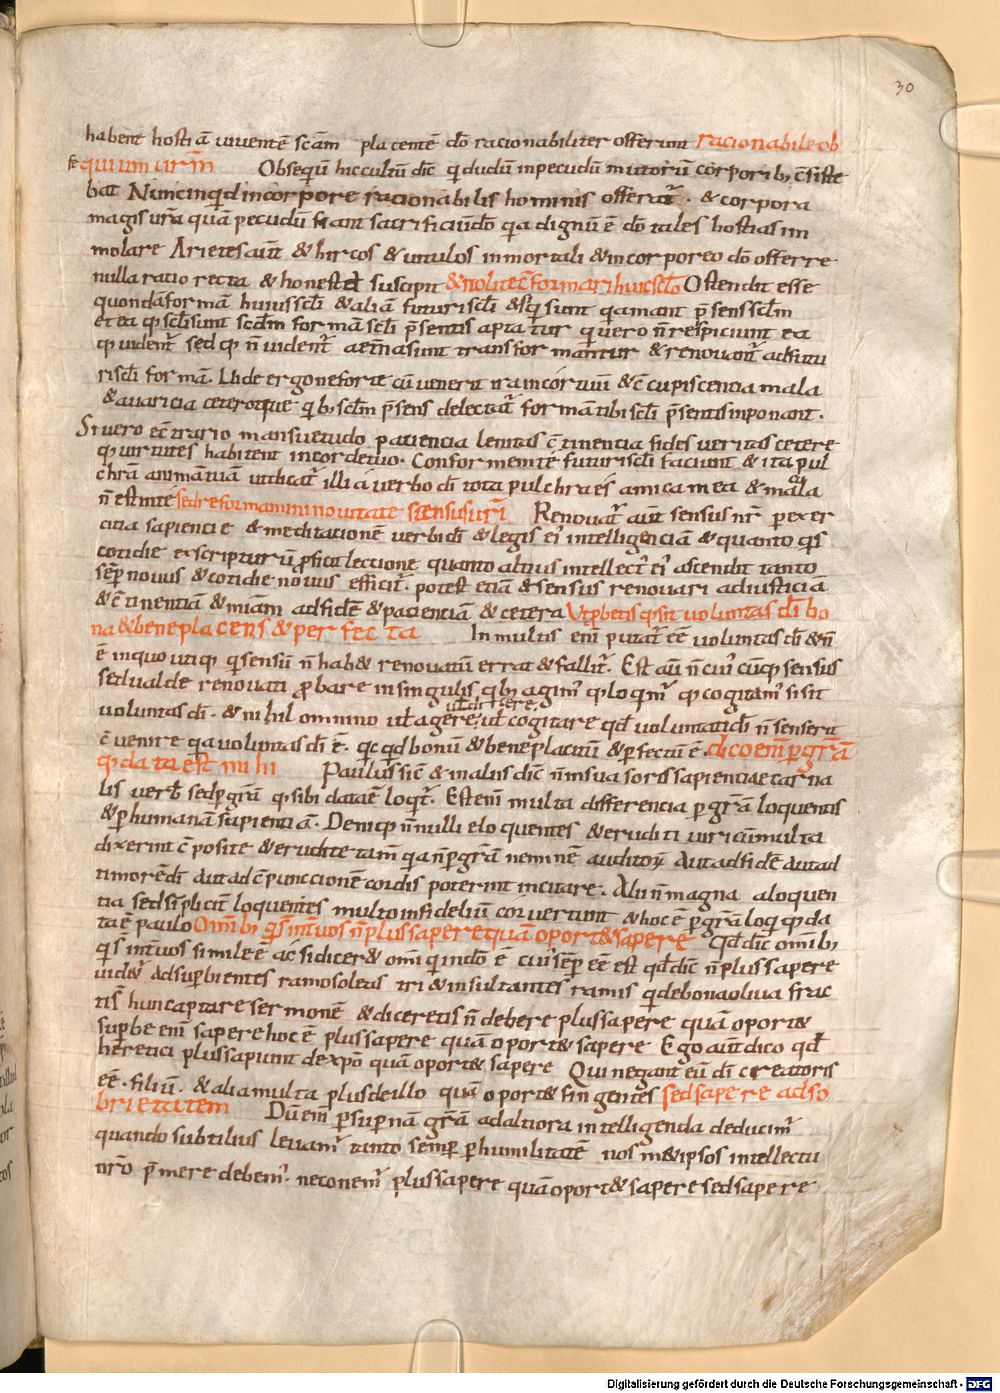 30
habent hostiā viventē scām placentē dō racionabiliter offerunt racionabile ob
se quium urm̄ Obsequiū hic cultū dīc qi dudū in pecudū mutorū corporib; c̄siste
bat Nunc in qid in corpore racionabilis hominis offerat̄ . & corpora
magis ura quā pecudū fiant sacrificiū dō qa dignū ē dō tales hostias im
molare Arietes aut̄ & hircos & vitulos inmortali & incorporeo dō offerre
nulla ratio recta & honesta suscipit & nolite c̄formari huic scl̄o Ostendit esse
quondā formā huius scl̄i & aliā futuri scl̄i & sīqi sunt qi amant p̄sens scl̄m
et ea q; scl̄i sunt scdm̄ formā scl̄i p̄sentis aptatur qi vero n̄ respiciunt ea
q; vident̄ sed q; n̄ vident̄ aet̄na sunt transformantur & renovant̄ ad futu
ri scl̄i formā. Unde ergo ne forte cū venerit ira in cor tuū & c̄cupiscencia mala
& avaricia ceteraque qib; scl̄m p̄sens delectat̄ formā tibi scl̄i p̄sentis inponant.
Si vero ec̄trario mansuetudo patiencia lenitas c̄tinencia fides veritas cetere
q; virtutes habitent in corde tuo. Conformem te futuri scl̄i faciunt & ita pul
chrā animā tuā ut dicat̄ illi a verbo dī tota pulchra es amica mea & macla
n̄ est in te sed reformamini novitate sensus uri Renovat̄ aut̄ sensus nr̄ p exer
citia sapiencie & meditacionē verbi dī & legis ei' intelligenciā & quanto qis
cotidie ex scripturarū p̄ficit leccione quanto altius intellect' ei' ascendit tanto
semp novus & cotidie novus efficit̄. potest etiā & sensus renovari ad iusticiā
& c̄tinentiā & miām ad fidē & pacienciā & cetera Ut p̄betis q; sit voluntas dī bo
na & beneplacens & perfecta In multis enī putat̄ eē voluntas dī & n̄
ē in quo utiq; qi sensū n̄ hab& renovatū errat & fallit̄. Est aut̄ n̄ cui' cūq; sensus
sed valde renovati p̄bare in singulis qib; agim' q; loqm̄r q; cogitam' si sit
voluntas dī. & nihil omnino ut agere; ut cogitare qd voluntati dī n̄ senserit
ut dicere;
c̄venire qa voluntas dī ē. qcqd bonū & beneplacitū & pfectū ē. dico enī p grā
q; data est mihi Paulus sic & in aliis dīc n̄ in sua soris sapiencia et carna
lis verb̄ sed p grā q; sibi data ē loqt̄. Est enī multa differencia p grā loquentis
& p humanā sapientiā. Deniq; n̄nulli eloquentes & eruditi viri cū multa
dixerint c̄posite & erudite tam̄ qa n̄ p grā neminē auditorū aut ad fidē aut ad
timorē dī aut ad c̄punccionē cordis poterint incitare. Alii n̄ magna aloquen
tia sed simplicit̄ loquentes multo infideliū cōvertunt & hoc ē p grā loqi q; da
ta ē paulo Omīb; qi sī int̄ vos n̄ plus sapere quā oport& sapere qd dīc omīb;
qi sī int̄ vos simile ē ac si dicer& omī qi in dō ē cui' semp eē est qd dīc n̄ plus sapere
vid&ur ad supbientes ramos oleastri & insultantes ramis qi de bona oliva frac
tis hunc aptare sermonē & diceretis n̄ debere plus sapere quā oport&
supbe enī sapere hoc ē plus sapere quā oport& sapere Ego aut̄ dico qd
heretici plus sapiunt de xpō quā oport& sapere Qui negant eū dī creatoris
eē. filiū. & alia multa plus de illo quā oport& fingentes sed sapere ad so
brietatem Dū enī p supnā grā ad altiora intelligenda deducim'
quando subtilius levam̄ tanto semp p humilitatē nos met ipsos intellectu
nr̄o p̄mere debem'. ne conem̄ plus sapere quā oport& sapere sed sapere
Digitalisierung gefördert durch die Deutsche Forschungsgemeinschaft - DFG